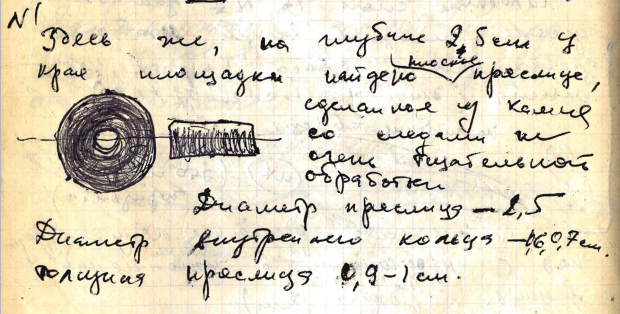 N1
Здесь же, на глубине 2,5 см у
плоское
края площадки найдено пряслице,
сделанное из камня
со следами не
очень тщательной
обработки
Диаметр пряслица – 2,5
Диаметр внутреннего кольца – 0,7 см.
толщина пряслица 0,9-1 см.